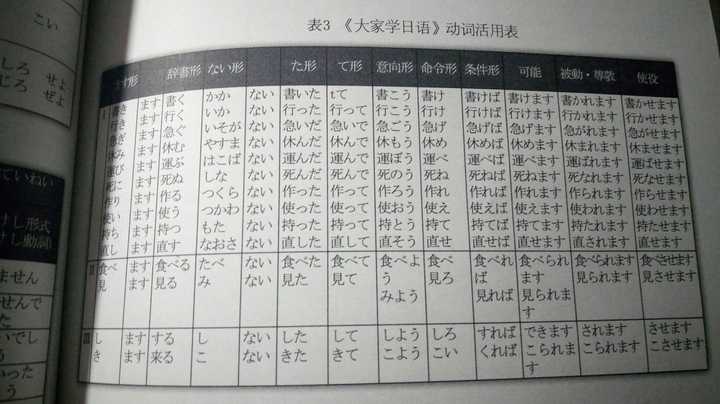 こい
しろ せよ
じろ ぜよ
ていねい
けし形式
けし動詞)
ません
せんで
た
いでし
る
いった
う
表3 《大家学日语》动词活用表
ます形 辞書形 ない形 た形 て形 意向形 命令形 条件形 可能 被動・尊敬 使役
I 書き ます 書く かか ない 書いた tて 書こう 書け 書けば 書けます 書かれます 書かせます
行き ます 行く いか ない 行った 行って 行こう 行け 行けば 行けます 行かれます 行かせます
急ぎ ます 急ぐ いそが ない 急いだ 急いで 急ごう 急げ 急げば 急げます 急がれます 急がせます
休み ます 休む やすま ない 休んだ 休んで 休もう 休め 休めば 休めます 休まれます 休ませます
運び ます 運ぶ はこば ない 運んだ 運んで 運ぼう 運べ 運べば 運べます 運ばれます 運ばせます
死に ます 死ぬ しな ない 死んだ 死んで 死のう 死ね 死ねば 死ねます 死なれます 死なせます
作り ます 作る つくら ない 作った 作って 作ろう 作れ 作れば 作れます 作られます 作らせます
使い ます 使う つかわ ない 使った 使って 使おう 使え 使えば 使えます 使われます 使わせます
持ち ます 持つ もた ない 持った 持って 持とう 持て 持てば 持てます 持たれます 持たせます
直し ます 直す なおさ ない 直した 直して 直そう 直せ 直せば 直せます 直されます 直させます
II 食べ ます 食べる たべ ない 食べた 食べて 食べよ 食べ 食べれ 食べられ 食べられます 食べさせます
見 ます 見る み ない 見た 見て う 見ろ ば ます 見られます 見させます
みよう 見れば 見られま
す
III し ます する し ない した して しよう しろ すれば できます されます させます
き ます 来る こ ない きた きて こよう こい くれば こられま こられます こさせます
す